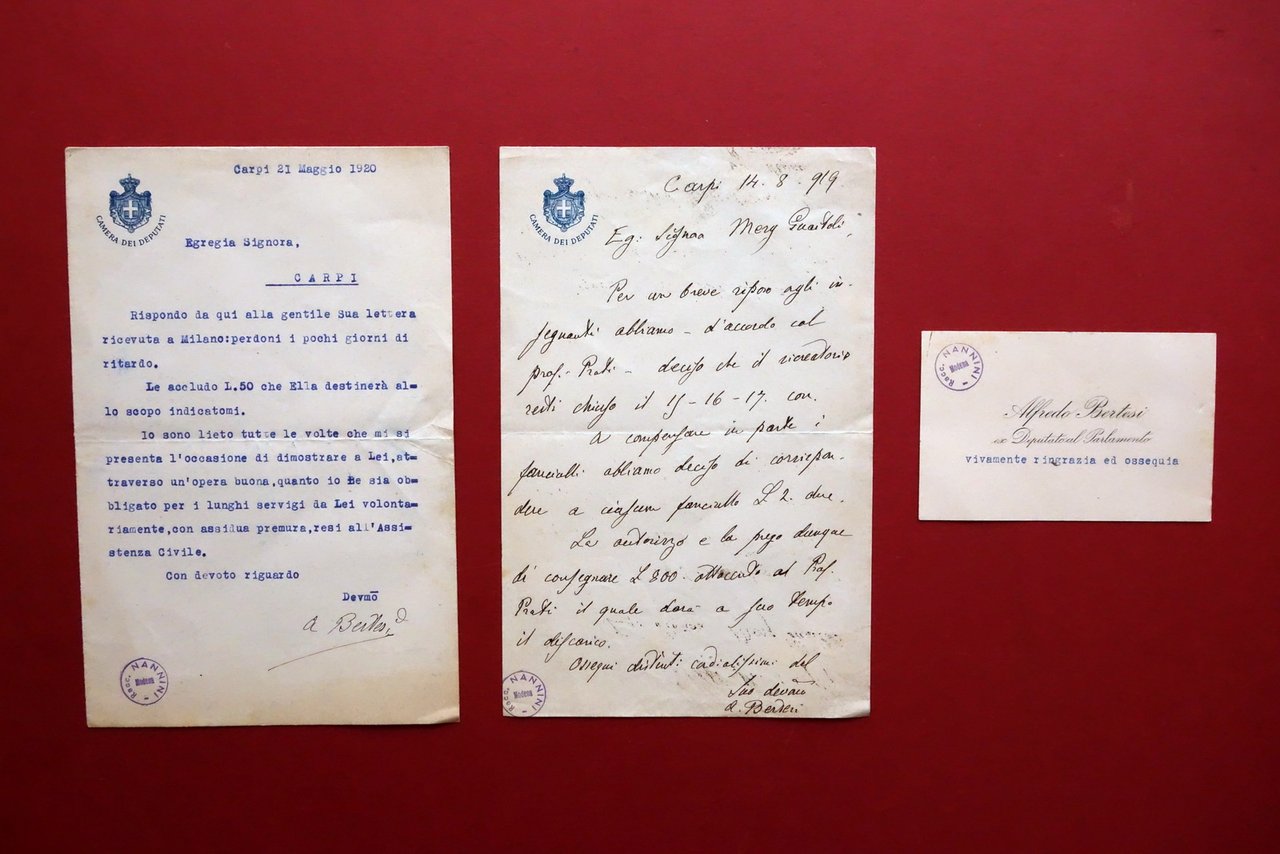 Carpi 21 Maggio 1920
CAMERA DEI DEPUTATI
Egregia Signora,
CARPI
Rispondo da qui alla gentile Sua lettera
ricevuta a Milano:perdoni i pochi giorni di
ritardo.
Le accludo L.50 che Ella destinerà al=
lo scopo indicatomi.
Io sono lieto tutte le volte che mi si
presenta l'occasione di dimostrare a Lei,at=
traverso un'opera buona,quanto io le sia ob=
bligato per i lunghi servigi da Lei volonta=
riamente,con assidua premura,resi all'Assi=
stenza Civile.
Con devoto riguardo
Devmo
A Bertesi
Racc. NANNINI - Modena
Carpi 14. 8. 919
CAMERA DEI DEPUTATI
Eg: Signora Mery
Per un breve riposo agli in-
segnanti abbiamo - d'accordo col
prof. Prati - deciso che il ricreatorio
resti chiuso il 15-16-17. cor.
A compensare in parte i
fanciulli abbiamo deciso di corrispon-
dere a ciascun fanciullo L 2. due.
La autorizzo e la prego dunque
di consegnare L 800. ottocento al Prof.
Prati il quale darà a suo tempo
il discarico.
Ossequi distinti cordialissimi del
Suo devmo
A. Bertesi
Racc. NANNINI - Modena
Racc. NANNINI - Modena
Alfredo Bertesi
ex Deputato al Parlamento
vivamente ringrazia ed ossequia